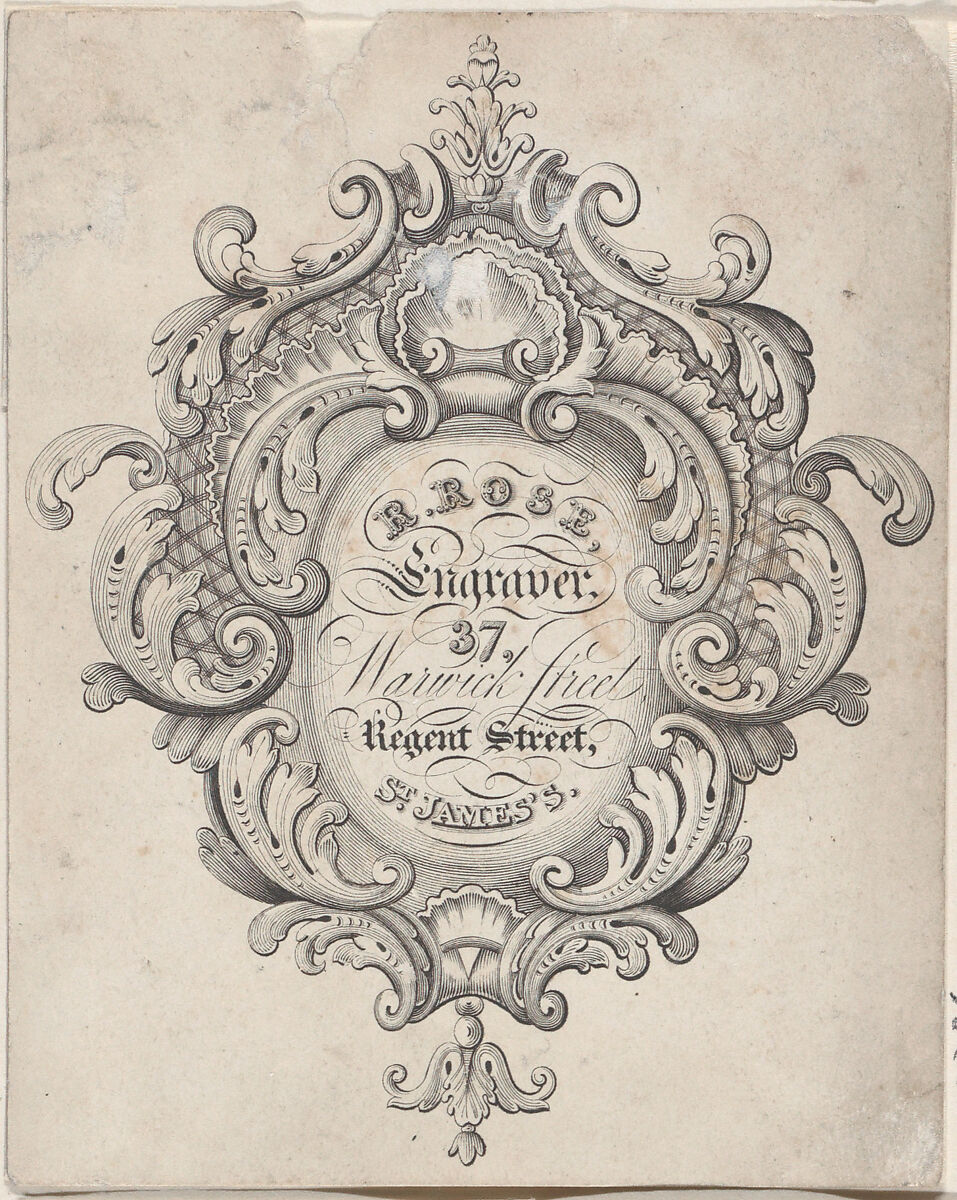 R. ROSE,
Engraver.
37,
Warwick Street
Regent Street,
ST. JAMES'S.